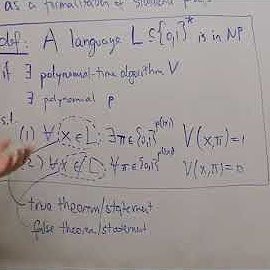 as a formalization of
def: A language L ⊆ {0,1}* is in NP
if ∃ polynomial-time algorithm V
∃ polynomial p
s.t.
(1) ∀ x ∈ L ∃π∈{0,1}^p(|x|) V(x,π)=1
(2) ∀ x ∉ L ∀π∈{0,1}^p(|x|) V(x,π)=0
true theorem/statement
false theorem/statement